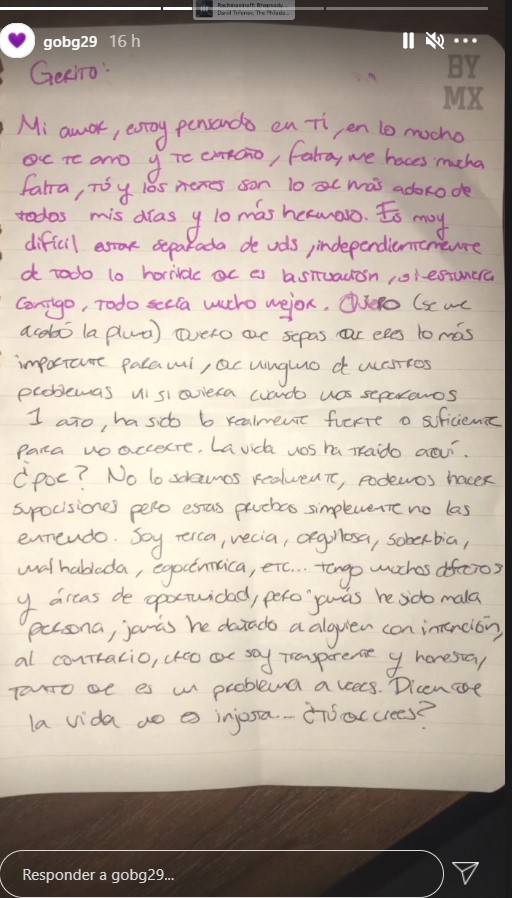 Rachmaninoff: Rhapsody...
gobg29 16 h
BY
MX
Gerito:
Mi amor, estoy pensando en Ti, en lo mucho
que te amo y te extraño, falta, me haces mucha
falta, tú y los nenes son lo que más adoro de
todos mis días y lo más hermoso. Es muy
difícil estar separada de uds, independientemente
de todo lo horrible que es la situación, si estuviera
contigo, todo sería mucho mejor. Quiero (se me
acabó la pluma) Quiero que sepas que eres lo más
importante para mi, que ninguno de nuestros
problemas ni si quiera cuando nos separamos
1 año, ha sido lo realmente fuerte o suficiente
para no quererte. La vida nos ha traido aquí.
¿por? No lo sabemos realmente, podemos hacer
suposiciones pero estas pruebas simplemente no las
entiendo. Soy terca, necia, orgullosa, soberbia,
mal hablada, egocéntrica, etc... tengo muchos defectos
y áreas de oportunidad, pero jamás he sido mala
persona, jamás he dañado a alguien con intención,
al contrario, creo que soy transparente y honesta,
tanto que es un problema a veces. Dicen que
la vida no es injusta... ¿Tú que crees?
Responder a gobg29...